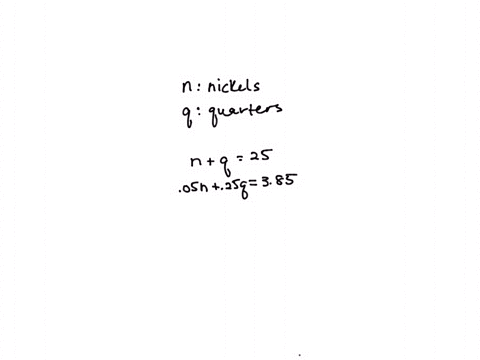 n: nickels
q: quarters
n + q = 25
.05n + .25q = 3.85